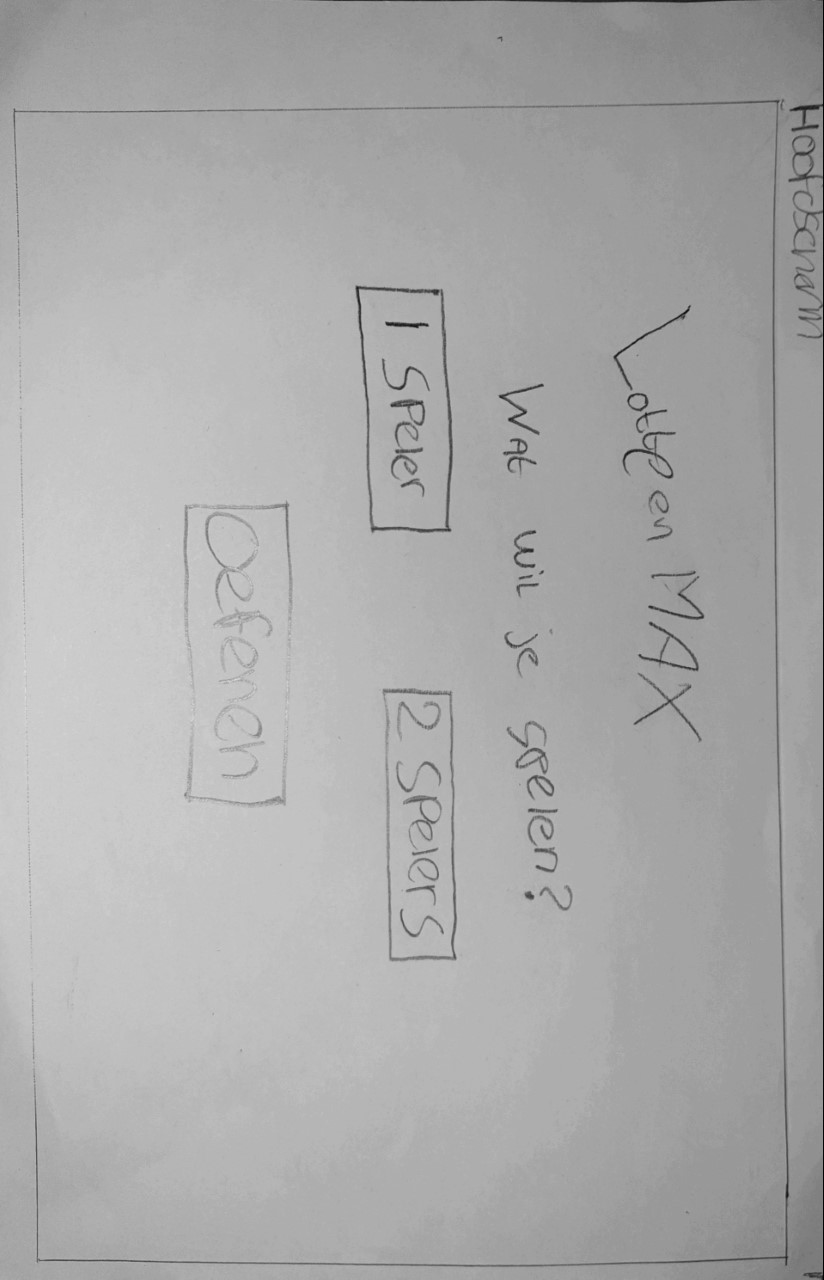 Hoofdscherm
Lotte en MAX
Wat wil je spelen?
1 speler
2 spelers
oefenen